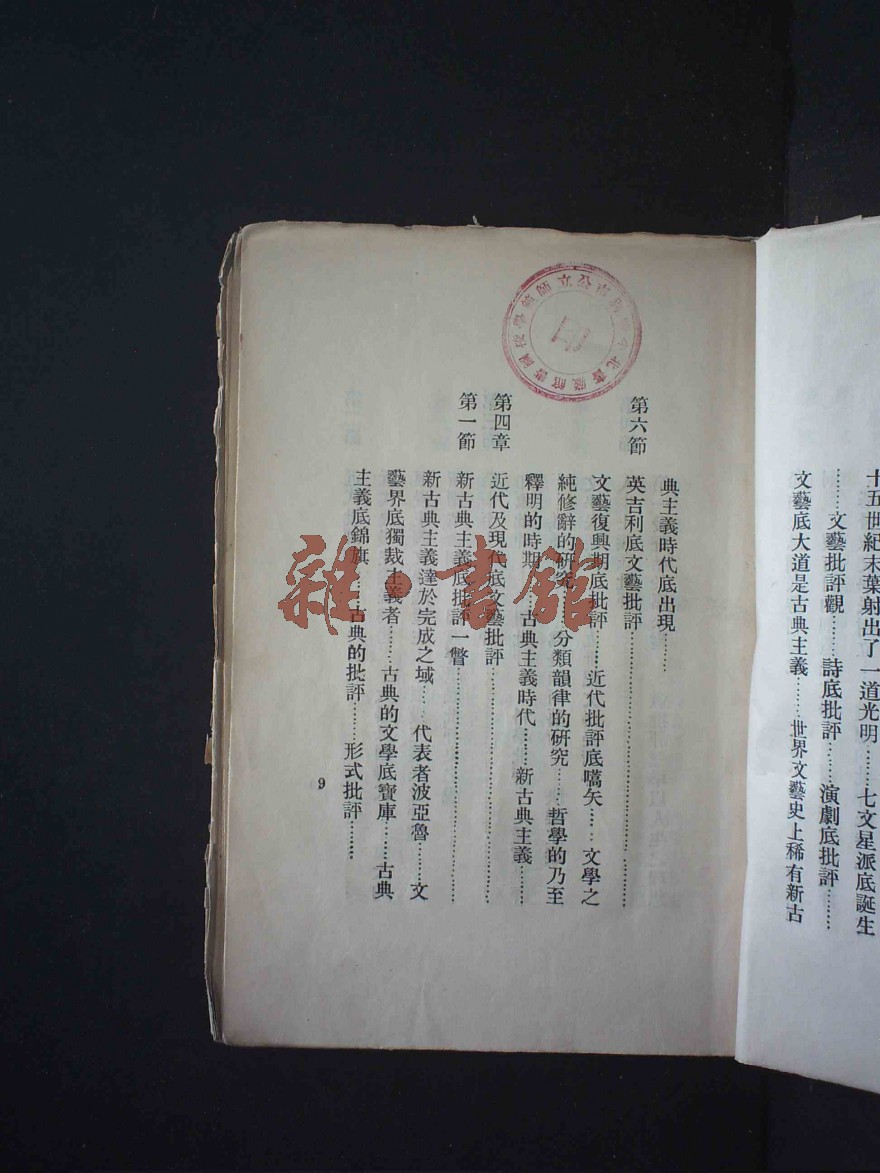 十五世紀末葉射出了一道光明……七文星派底誕生
………文藝批評觀………詩底批評………演劇底批評………
文藝底大道是古典主義………世界文藝史上稀有新古
典主義時代底出現………
第六節 英吉利底文藝批評………………………………
文藝復興期底批評………近代批評底嚆矢……文學之
純修辭的研究 分類韻律的研究………哲學的乃至
釋明的時期 古典主義時代………新古典主義………
第四章 近代及現代底文藝批評………………………………
第一節 新古典主義底批評一瞥………………………………
新古典主義達於完成之域……代表者波亞魯………文
藝界底獨裁主義者………古典的文學底寶庫………古典
主義底錦旗………古典的批評………形式批評………
9
公立師範學校圖書館
印
雜·書館